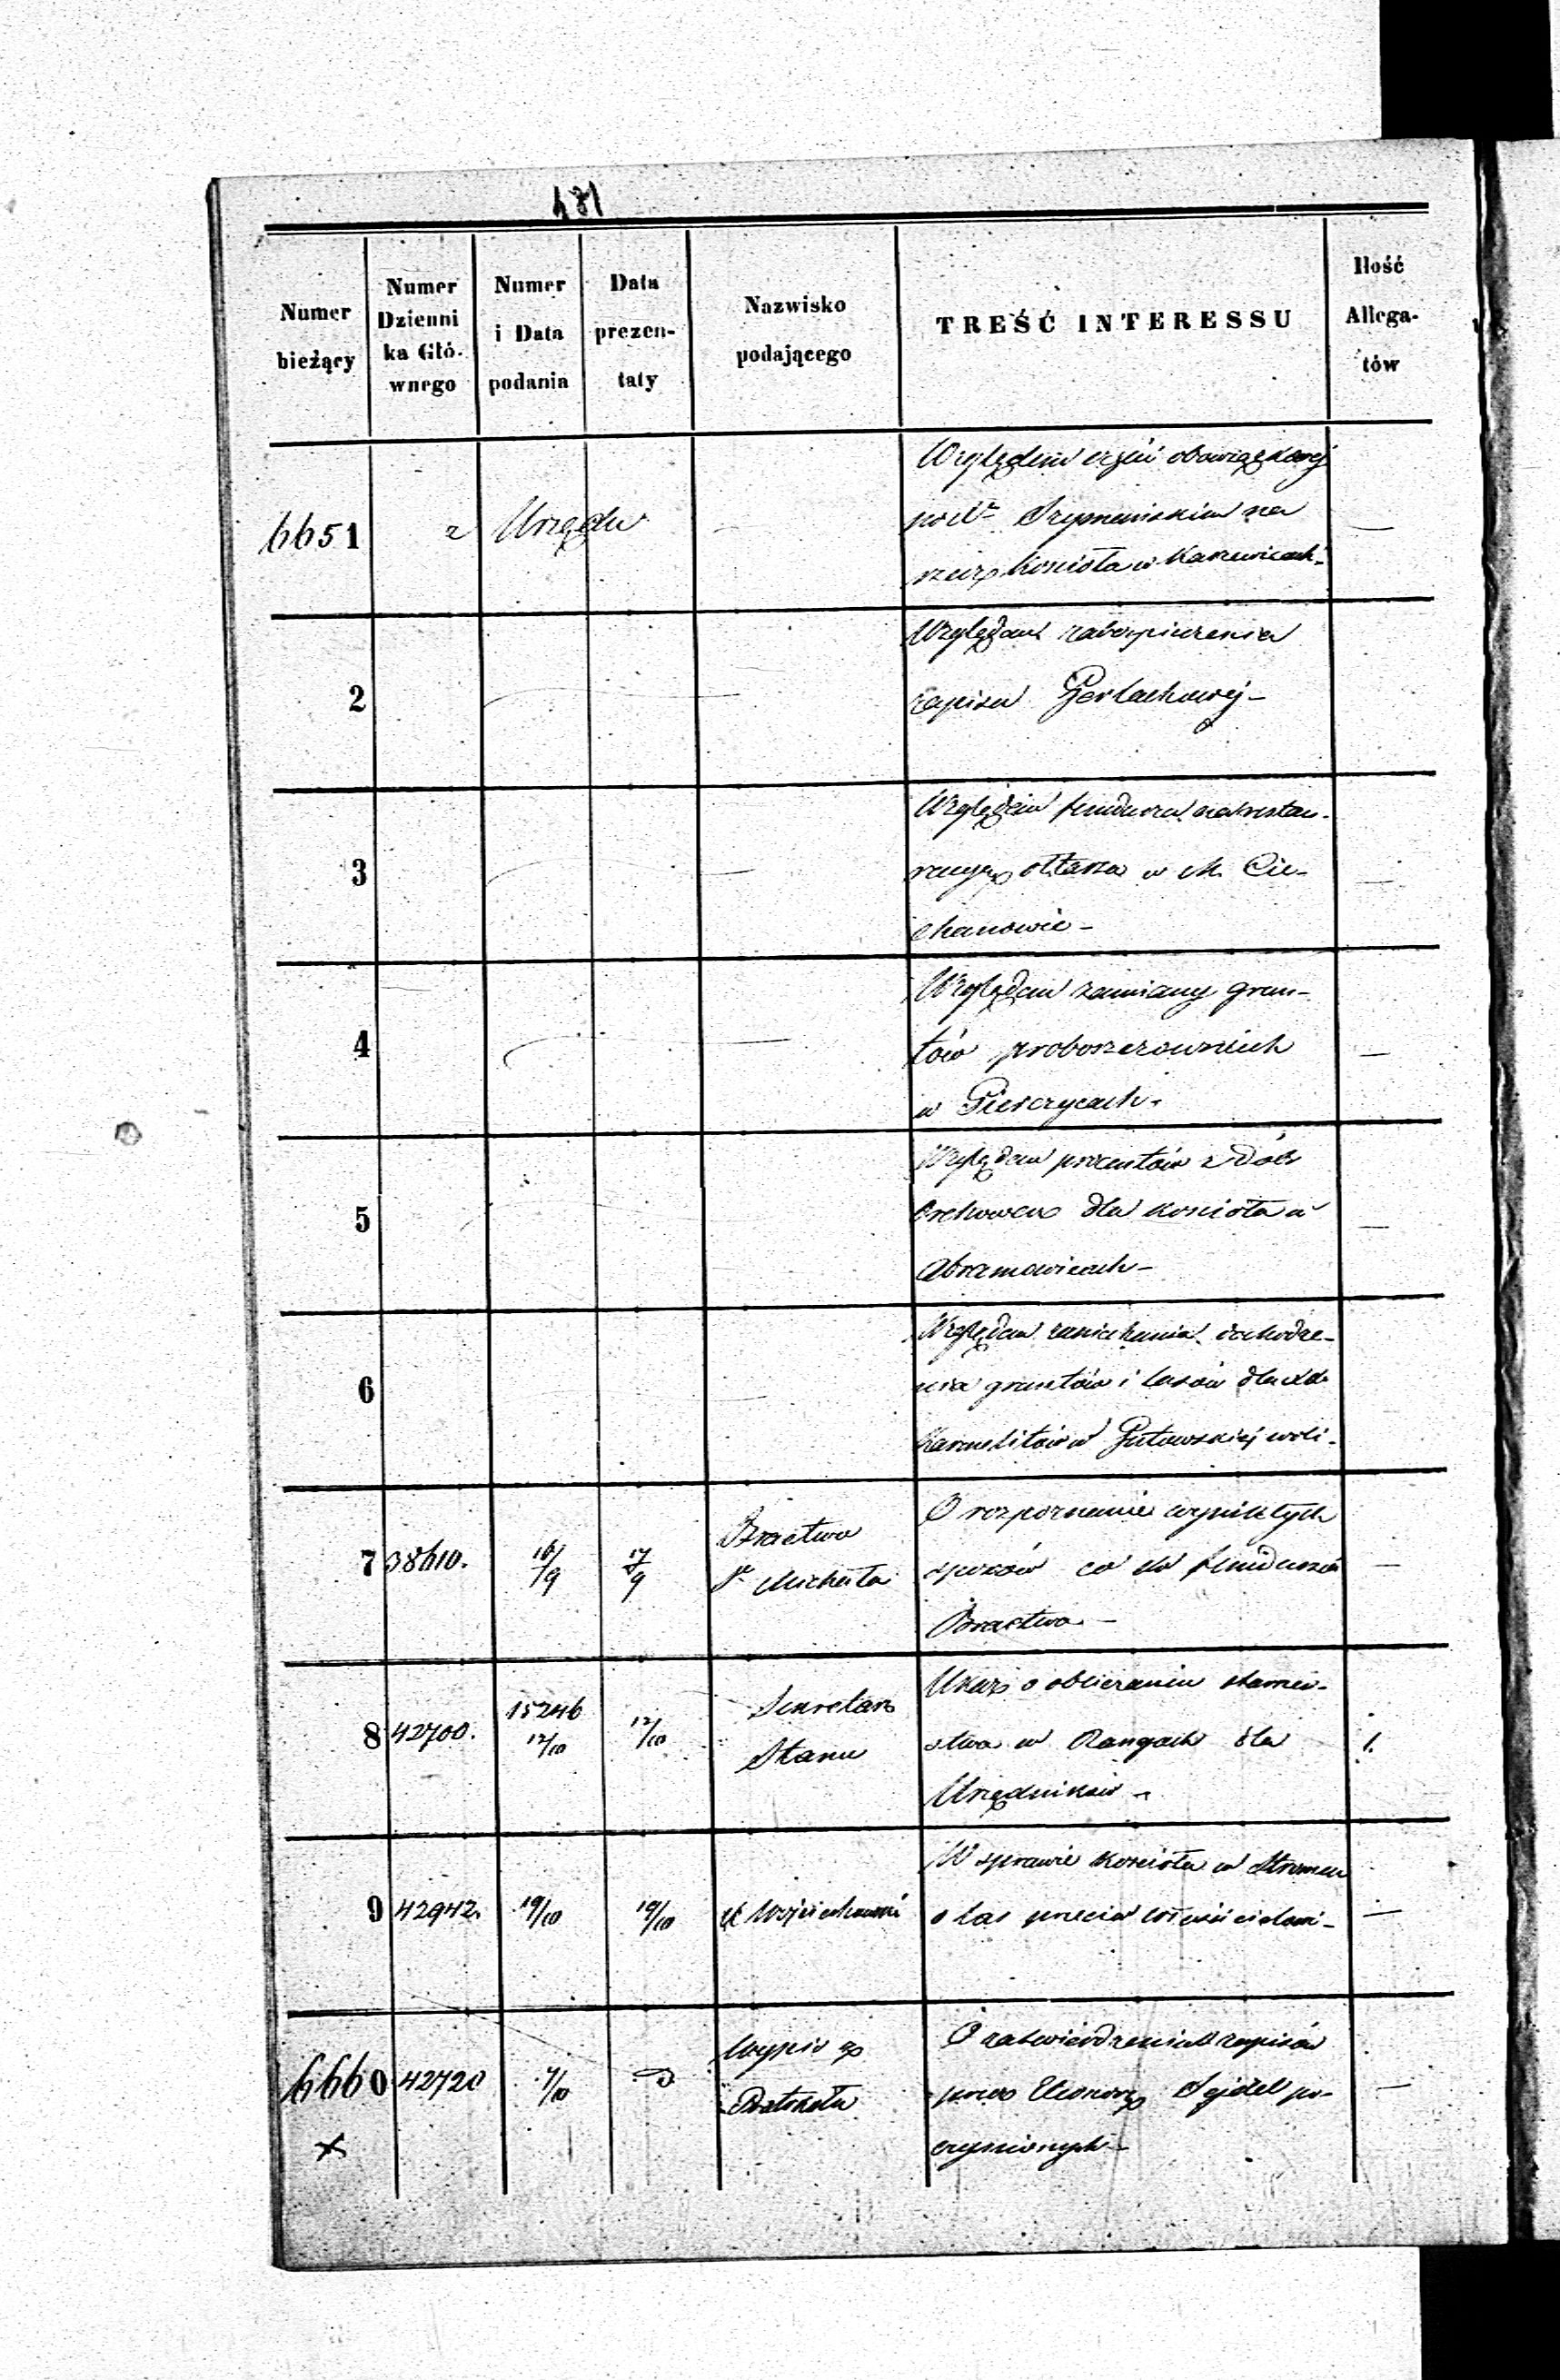 481
Numer bieżący
Numer Dzienni ka Głó- wnego
Numer i Data podania
Data prezen- taty
Nazwisko podającego
TREŚĆ INTERESSU
Ilość Allega- tów
6651 z Urzędu
Względem obowiązkowej
na
Kościoła w —
2
Względem zabezpieczenia
zapisu Gerlachowej —
3
Względem funduszu na restau-
racyą ołtarza w M. Cie-
chanowie — —
4
Względem zamiany grun-
tów proboszczowskich —
w
5
Względem procentów z dóbr
dla kościoła w —
Abramowicach —
6
Względem zaniechania dochodze-
nia gruntów i lasów dla
Karmelitów w Gutowskiej woli —
7 38610. 16/9 17/9 Bractwo Sgo Michała
O rozpoznanie wynikłych
sporów co do funduszu —
Bractwa —
8 42700. 15246 12/10 12/10 Sekretarz Stanu
Ukaz o obliczaniu starszeń-
stwa w Rangach dla 1.
Urzędników —
9 42942. 19/10 19/10 X Wojciechowski
W sprawie kościoła w Stromcu
o las przeciw włościcielowi — —
6660 42720 7/10 D Wypis z Protokołu
O zatwierdzenie zapisów
przez Eleonorę Sejdel po- —
czynionych —
x